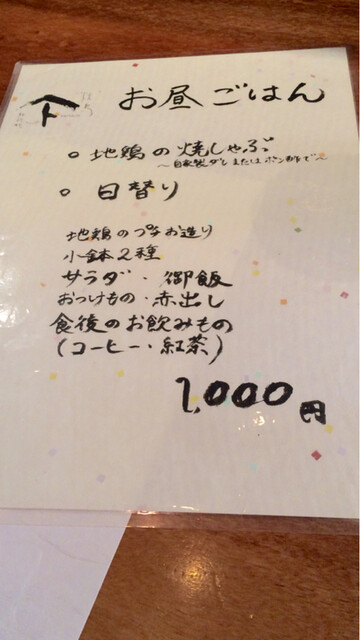 お昼ごはん
○ 地鶏の焼しゃぶ
〜自家製ダレまたはポン酢で〜
○ 日替り
地鶏のプチお造り
小鉢2種
サラダ・御飯
おつけもの・赤出し
食後のお飲みもの
(コーヒー・紅茶)
1,000円